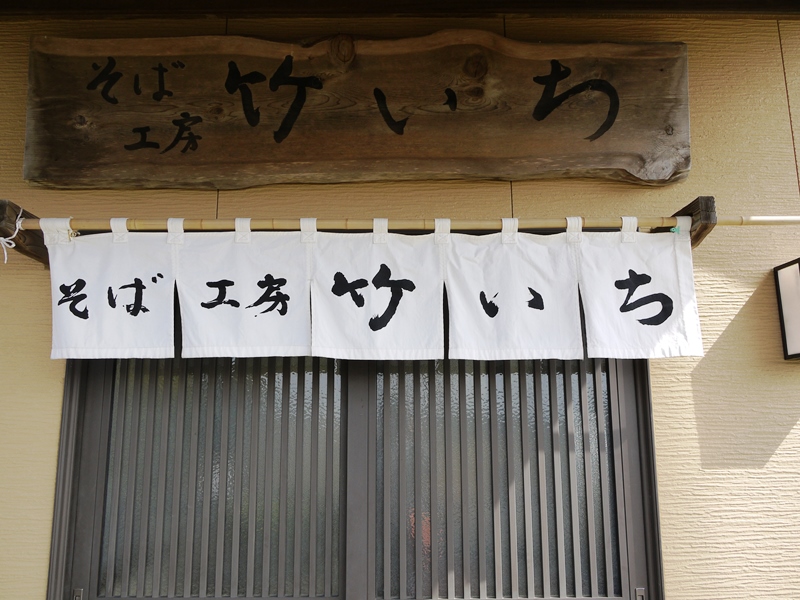 そば
工房
竹いち
そば工房竹いち